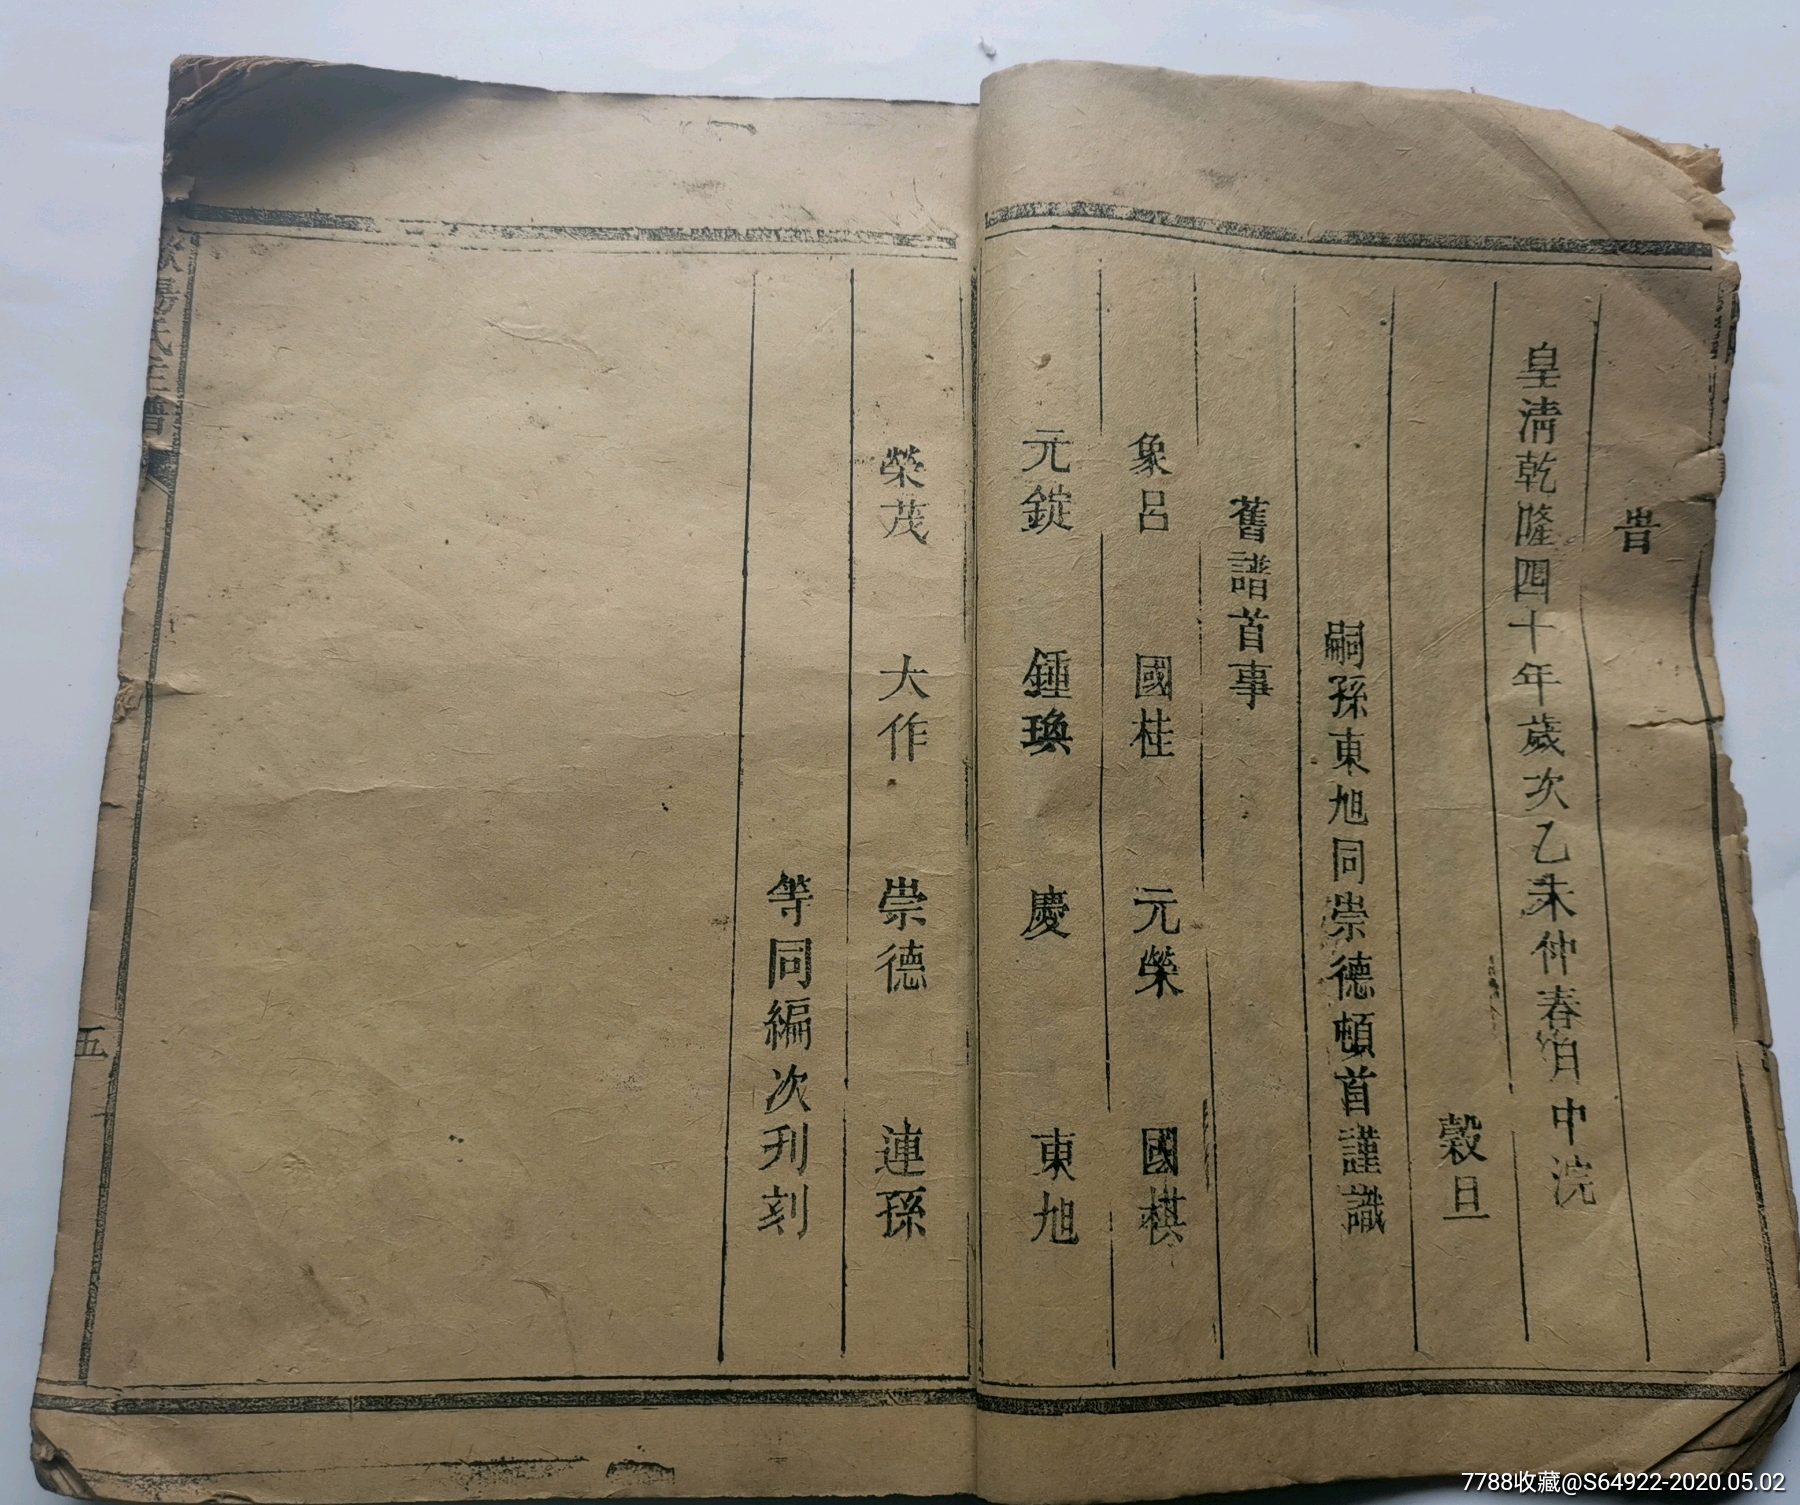 旹
皇淸乾隆四十年歲次乙未仲春月中浣
穀旦
嗣孫東旭同崇德頓首謹識
舊譜首事
象呂 國桂 元榮 國棋
元錠 鍾瑍 慶 東旭
榮茂 大作 崇德 連孫
等同編次刋刻
氏
譜
五
7788收藏@S64922-2020.05.02